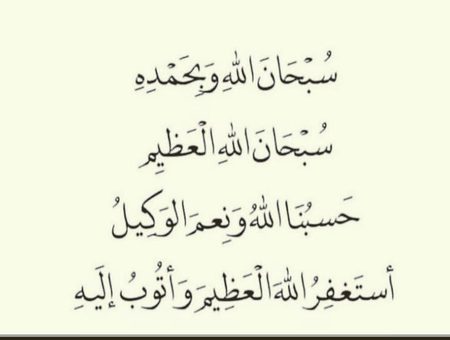 سُبْحَانَ اللهِ وَبِحَمْدِهِ
سُبْحَانَ اللهِ الْعَظِيمِ
حَسبُنَا اللهُ وَنِعمَ الوَكِيلُ
أستَغفِرُ اللهَ الْعَظِيمَ وَأتُوبُ إلَيهِ